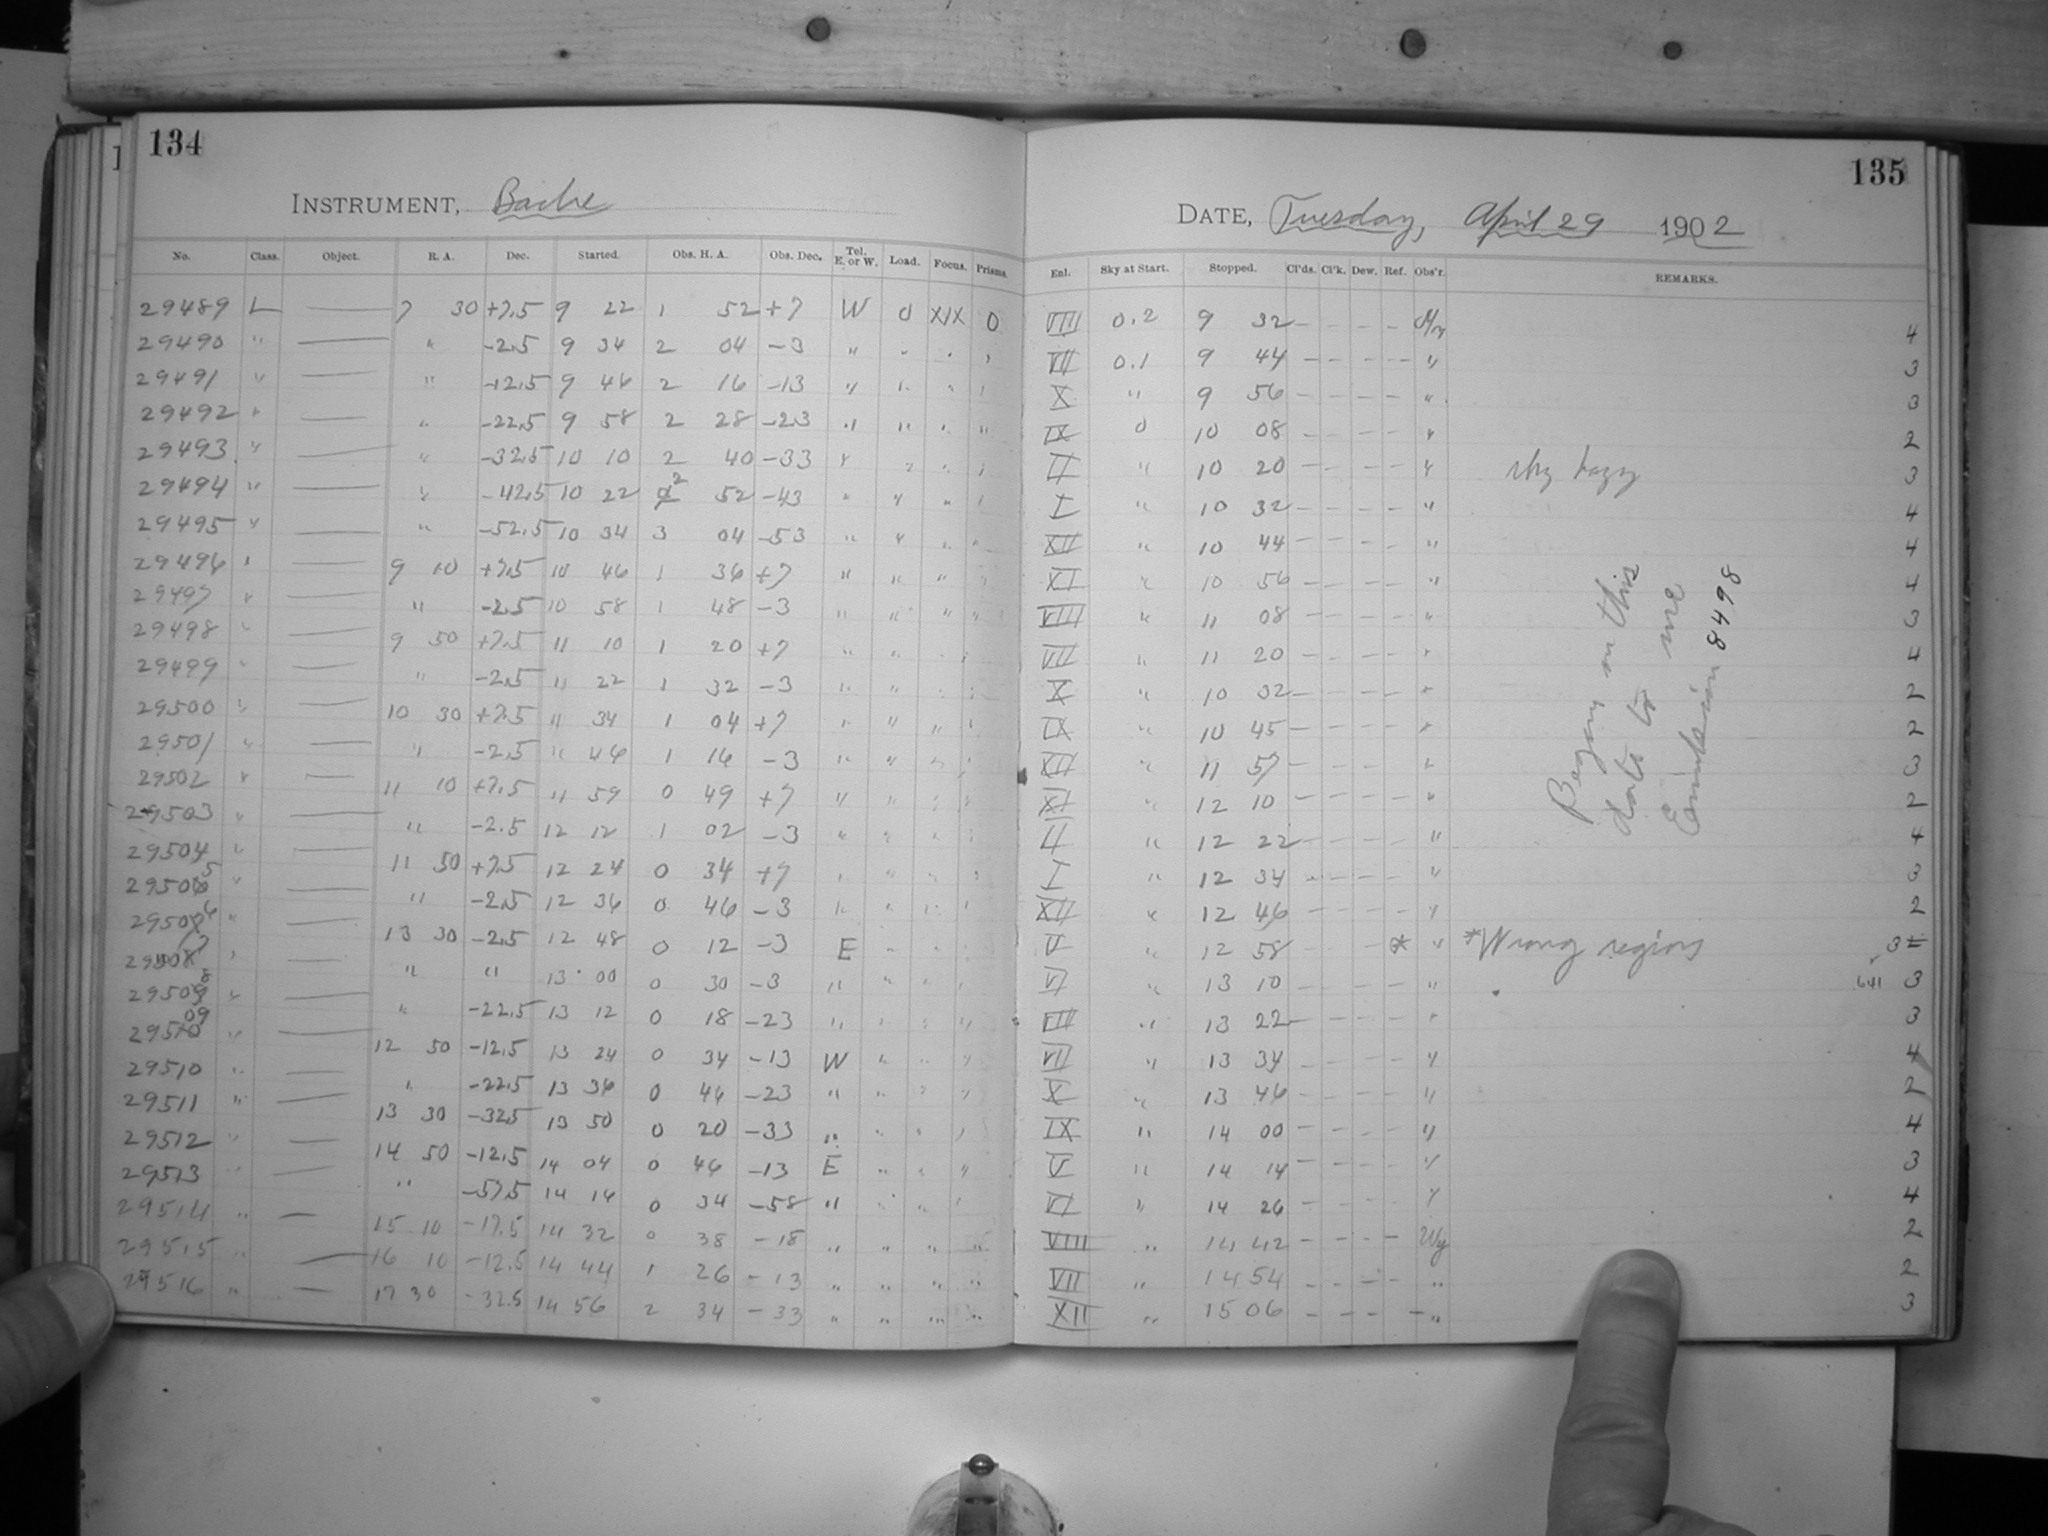 134
135
INSTRUMENT, Bache
DATE, Tuesday, April 29 1902
No. Class. Object. R. A. Dec. Started. Obs. H. A. Obs. Dec. Tel. E. or W. Load. Focus. Prisms. Enl. Sky at Start. Stopped. Cl'ds. Cl'k. Dew. Ref. Obs'r. REMARKS.
29489 L — 7 30 +7.5 9 22 1 52 +7 W 0 XIX 0 VIII 0.2 9 32 — — — — 4
29490 " — " -2.5 9 34 2 04 -3 " " " " VII 0.1 9 44 — — — — " 3
29491 " — " -12.5 9 46 2 16 -13 " " " " X " 9 56 — — — — " 3
29492 " — " -22.5 9 58 2 28 -23 " " " " IX 0 10 08 — — — — " 2
29493 " — " -32.5 10 10 2 40 -33 " " " " II " 10 20 — — — — " sky hazy 3
29494 " — " -42.5 10 22 2 52 -43 " " " " I " 10 32 — — — — " 4
29495 " — " -52.5 10 34 3 04 -53 " " " " XII " 10 44 — — — — " 4
29496 " — 9 10 +7.5 10 46 1 36 +7 " " " " XI " 10 56 — — — — " 4
29497 " — " -2.5 10 58 1 48 -3 " " " " VIII " 11 08 — — — — " 3
29498 " — 9 50 +7.5 11 10 1 20 +7 " " " " VII " 11 20 — — — — " 4
29499 " — " -2.5 11 22 1 32 -3 " " " " X " 10 32 — — — — " 2
29500 " — 10 30 +7.5 11 34 1 04 +7 " " " " IX " 10 45 — — — — " 2
29501 " — " -2.5 " 46 1 16 -3 " " " " XII " 11 57 — — — — " 3
29502 " — 11 10 +7.5 11 59 0 49 +7 " " " " XI " 12 10 — — — — " 2
29503 " — " -2.5 12 12 1 02 -3 " " " " II " 12 22 — — — — " 4
29504 " — 11 50 +7.5 12 24 0 34 +7 " " " " I " 12 34 — — — — " 3
29505 " — " -2.5 12 36 0 46 -3 " " " " XII " 12 46 — — — — " 2
29506 " — 13 30 -2.5 12 48 0 12 -3 E " " " V " 12 58 — — — * " *Wrong region 3
29507 " — " " 13 00 0 30 -3 " " " " VI " 13 10 — — — — " 641 3
29508 " — " -22.5 13 12 0 18 -23 " " " " VIII " 13 22 — — — — " 3
29509 " — 12 50 -12.5 13 24 0 34 -13 W " " " VII " 13 34 — — — — " 4
29510 " — " -22.5 13 36 0 46 -23 " " " " X " 13 46 — — — — " 2
29511 " — 13 30 -32.5 13 50 0 20 -33 " " " " IX " 14 00 — — — — " 4
29512 " — 14 50 -12.5 14 04 0 46 -13 E " " " V " 14 14 — — — — " 3
29513 " — " -57.5 14 16 0 34 -58 " " " " VI " 14 26 — — — — " 4
29514 " — 15 10 -17.5 14 32 0 38 -18 " " " " VIII " 14 42 — — — — Wy 2
29515 " — 16 10 -12.5 14 44 1 26 -13 " " " " VII " 14 54 — — — — " 2
29516 " — 17 30 -32.5 14 56 2 34 -33 " " " " XII " 15 06 — — — — " 3
Began on this
date to use
Emulsion 8498